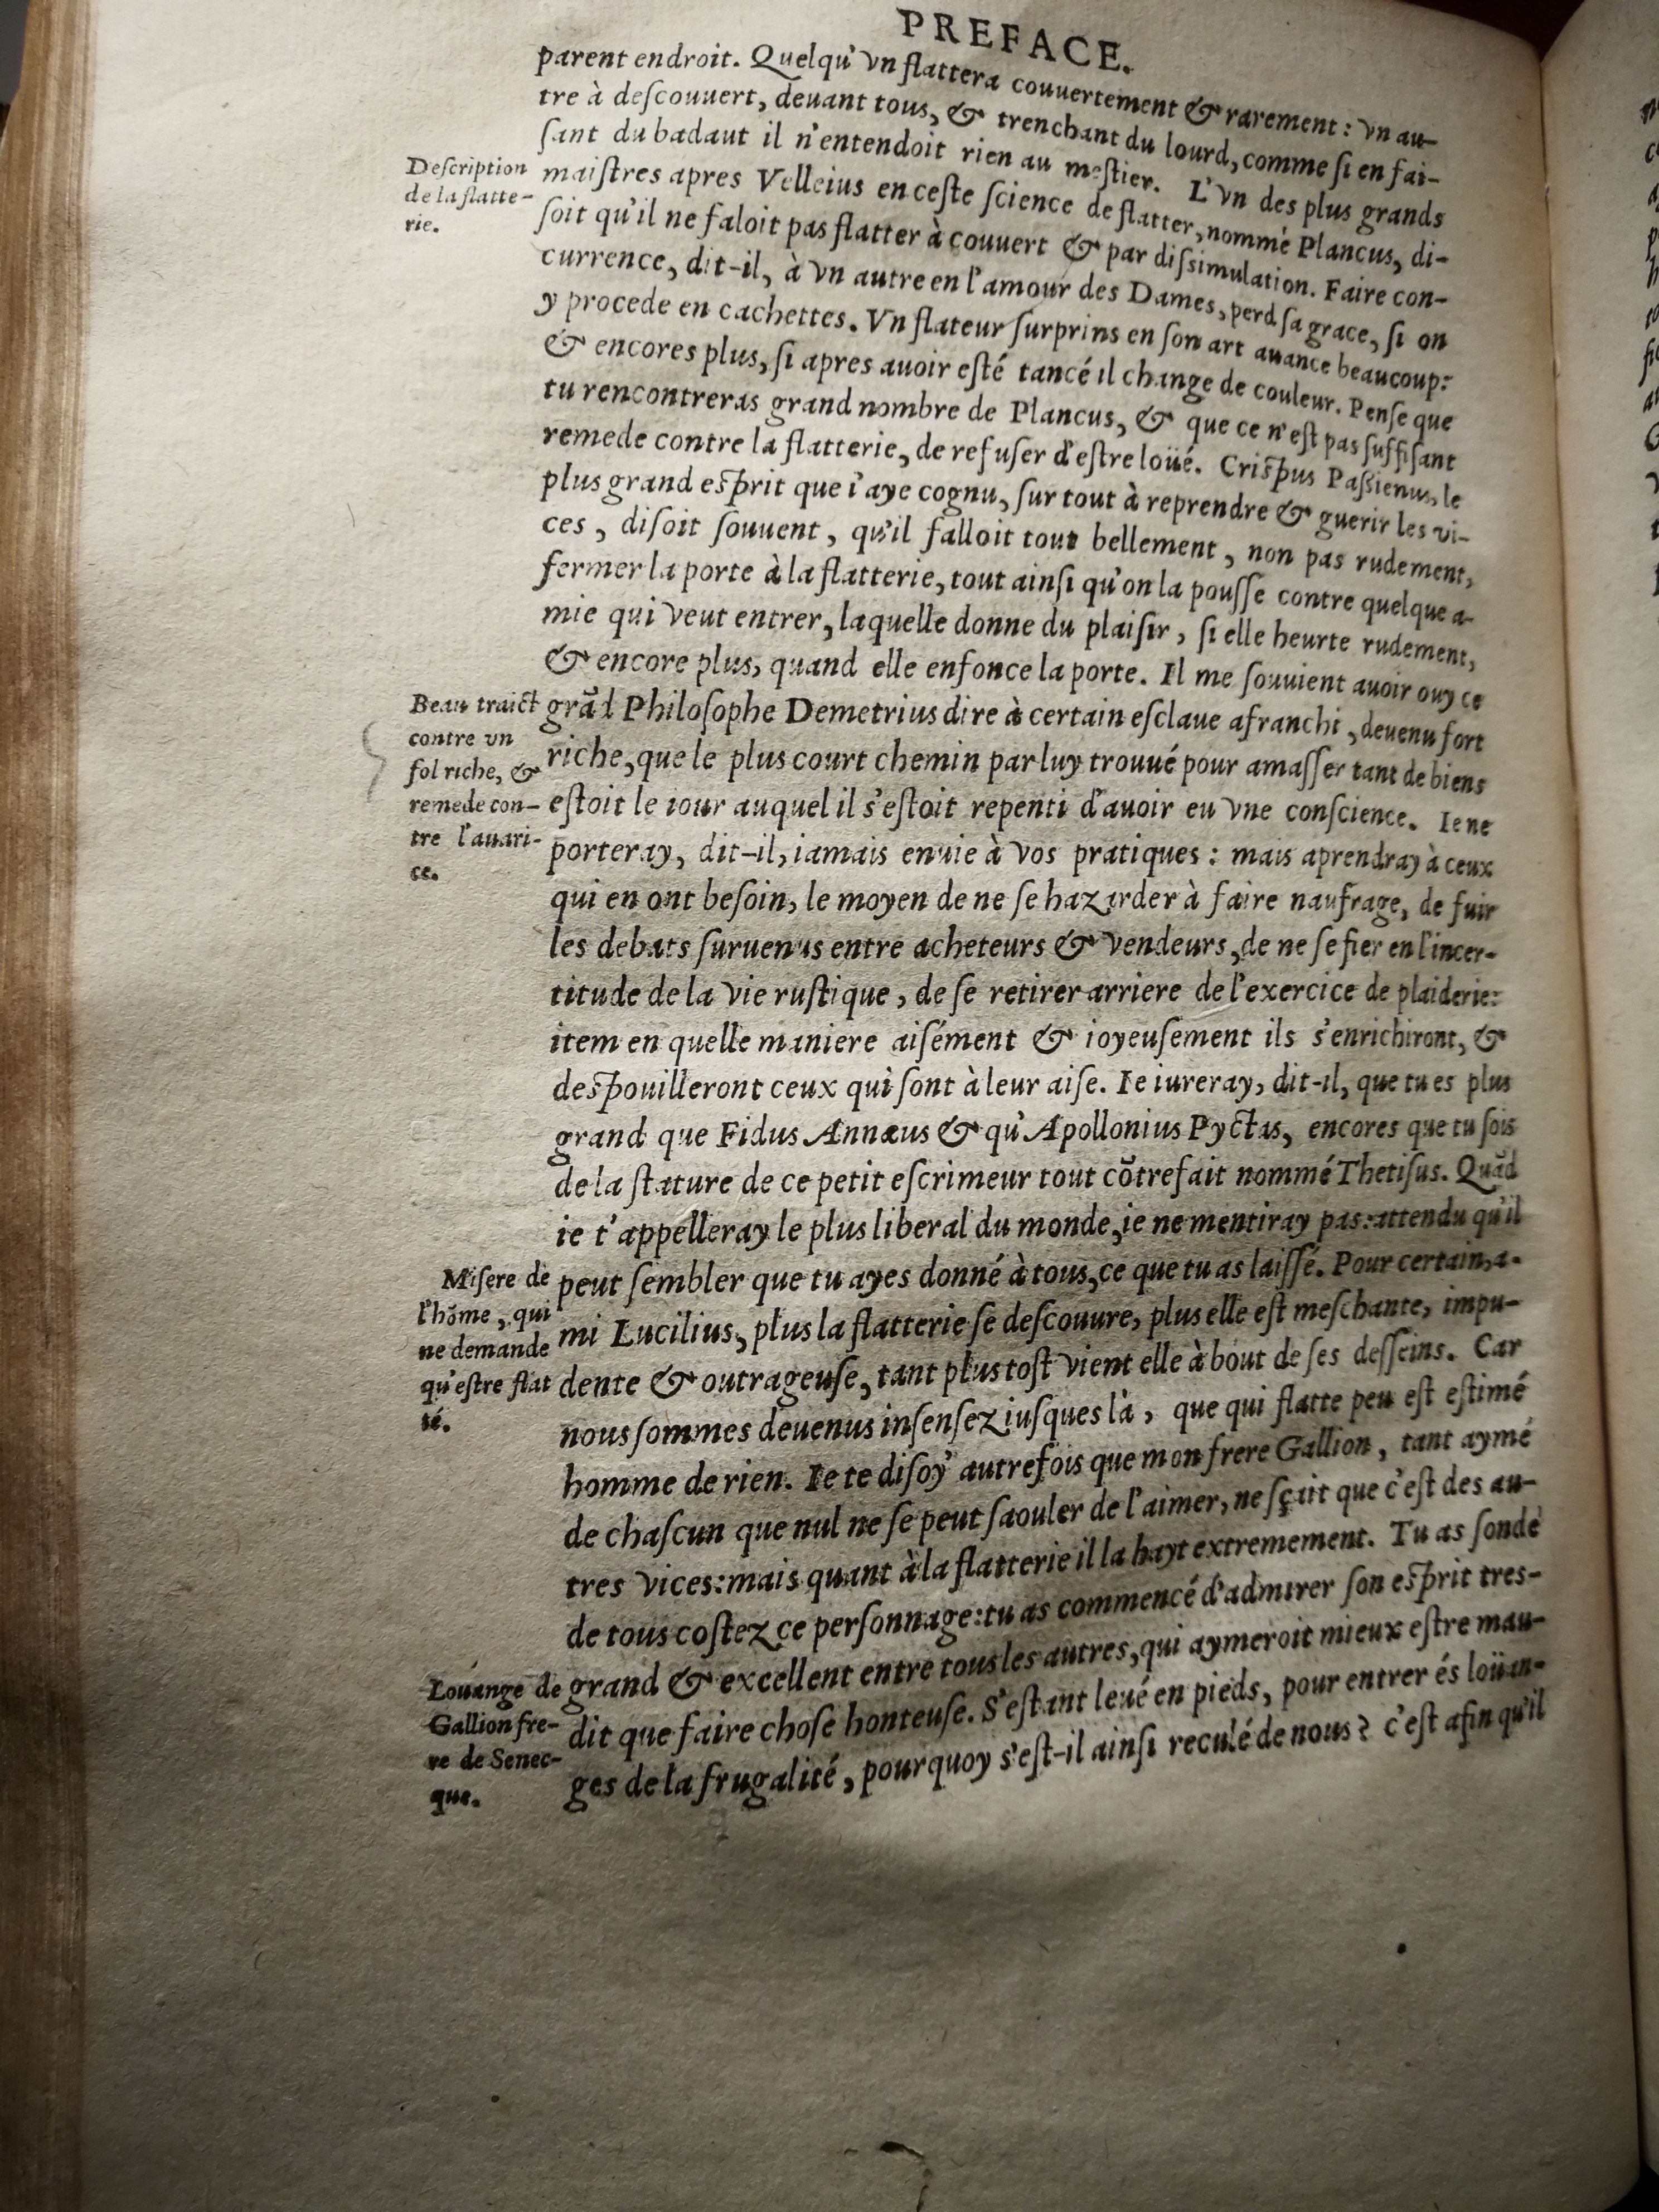 PREFACE.
parent endroit. Quelqu'vn flattera couuertement & rarement: vn au-
tre à deſcouuert, deuant tous, & trenchant du lourd, comme ſi en fai-
ſant du badaut il n'entendoit rien au meſtier. L'vn des plus grands
Deſcription
de la flatte-
rie.
maiſtres apres Velleius en ceſte ſcience de flatter, nommé Plancus, di-
ſoit qu'il ne faloit pas flatter à couuert & par diſsimulation. Faire con-
currence, dit-il, à vn autre en l'amour des Dames, perd ſa grace, ſi on
y procede en cachettes. Vn flateur ſurprins en ſon art auance beaucoup:
& encores plus, ſi apres auoir eſté tancé il change de couleur. Penſe que
tu rencontreras grand nombre de Plancus, & que ce n'eſt pas ſuffiſant
remede contre la flatterie, de refuſer d'eſtre loüé. Criſpus Paſsienus, le
plus grand eſprit que i'aye cognu, ſur tout à reprendre & guerir les vi-
ces, diſoit ſouuent, qu'il falloit tout bellement, non pas rudement,
fermer la porte à la flatterie, tout ainſi qu'on la pouſſe contre quelque a-
mie qui veut entrer, laquelle donne du plaiſir, ſi elle heurte rudement,
& encore plus, quand elle enfonce la porte. Il me ſouuient auoir ouy ce
Beau traict
contre vn
fol riche, &
remede con-
tre l'auari-
ce.
grãd Philoſophe Demetrius dire à certain eſclaue afranchi, deuenu fort
riche, que le plus court chemin par luy trouué pour amaſſer tant de biens
eſtoit le iour auquel il s'eſtoit repenti d'auoir eu vne conſcience. Ie ne
porteray, dit-il, iamais enuie à vos pratiques: mais aprendray à ceux
qui en ont beſoin, le moyen de ne ſe hazarder à faire naufrage, de fuir
les debats ſuruenus entre acheteurs & vendeurs, de ne ſe fier en l'incer-
titude de la vie ruſtique, de ſe retirer arriere de l'exercice de plaiderie:
item en quelle maniere aiſément & ioyeuſement ils s'enrichiront, &
deſpouilleront ceux qui ſont à leur aiſe. Ie iureray, dit-il, que tu es plus
grand que Fidus Annæus & qu'Apollonius Pyctas, encores que tu ſois
de la ſtature de ce petit eſcrimeur tout cõtrefait nommé Thetiſus. Quãd
ie t'appelleray le plus liberal du monde, ie ne mentiray pas: attendu qu'il
Miſere de
l'hõme, qui
ne demande
qu'eſtre flat
té.
peut ſembler que tu ayes donné à tous, ce que tu as laiſſé. Pour certain, a-
mi Lucilius, plus la flatterie ſe deſcouure, plus elle eſt meſchante, impu-
dente & outrageuſe, tant plus toſt vient elle à bout de ſes deſſeins. Car
nous ſommes deuenus inſenſez iuſques là, que qui flatte peu eſt eſtimé
homme de rien. Ie te diſoy autrefois que mon frere Gallion, tant aymé
de chaſcun que nul ne ſe peut ſaouler de l'aimer, ne ſçait que c'eſt des au-
tres vices: mais quant à la flatterie il la hayt extremement. Tu as ſondé
de tous coſtez ce perſonnage: tu as commencé d'admirer ſon eſprit tres-
Louange de
Gallion fre-
re de Senec-
que.
grand & excellent entre tous les autres, qui aymeroit mieux eſtre mau-
dit que faire choſe honteuſe. S'eſtant leué en pieds, pour entrer és loüan-
ges de la frugalité, pourquoy s'eſt-il ainſi reculé de nous? c'eſt afin qu'il